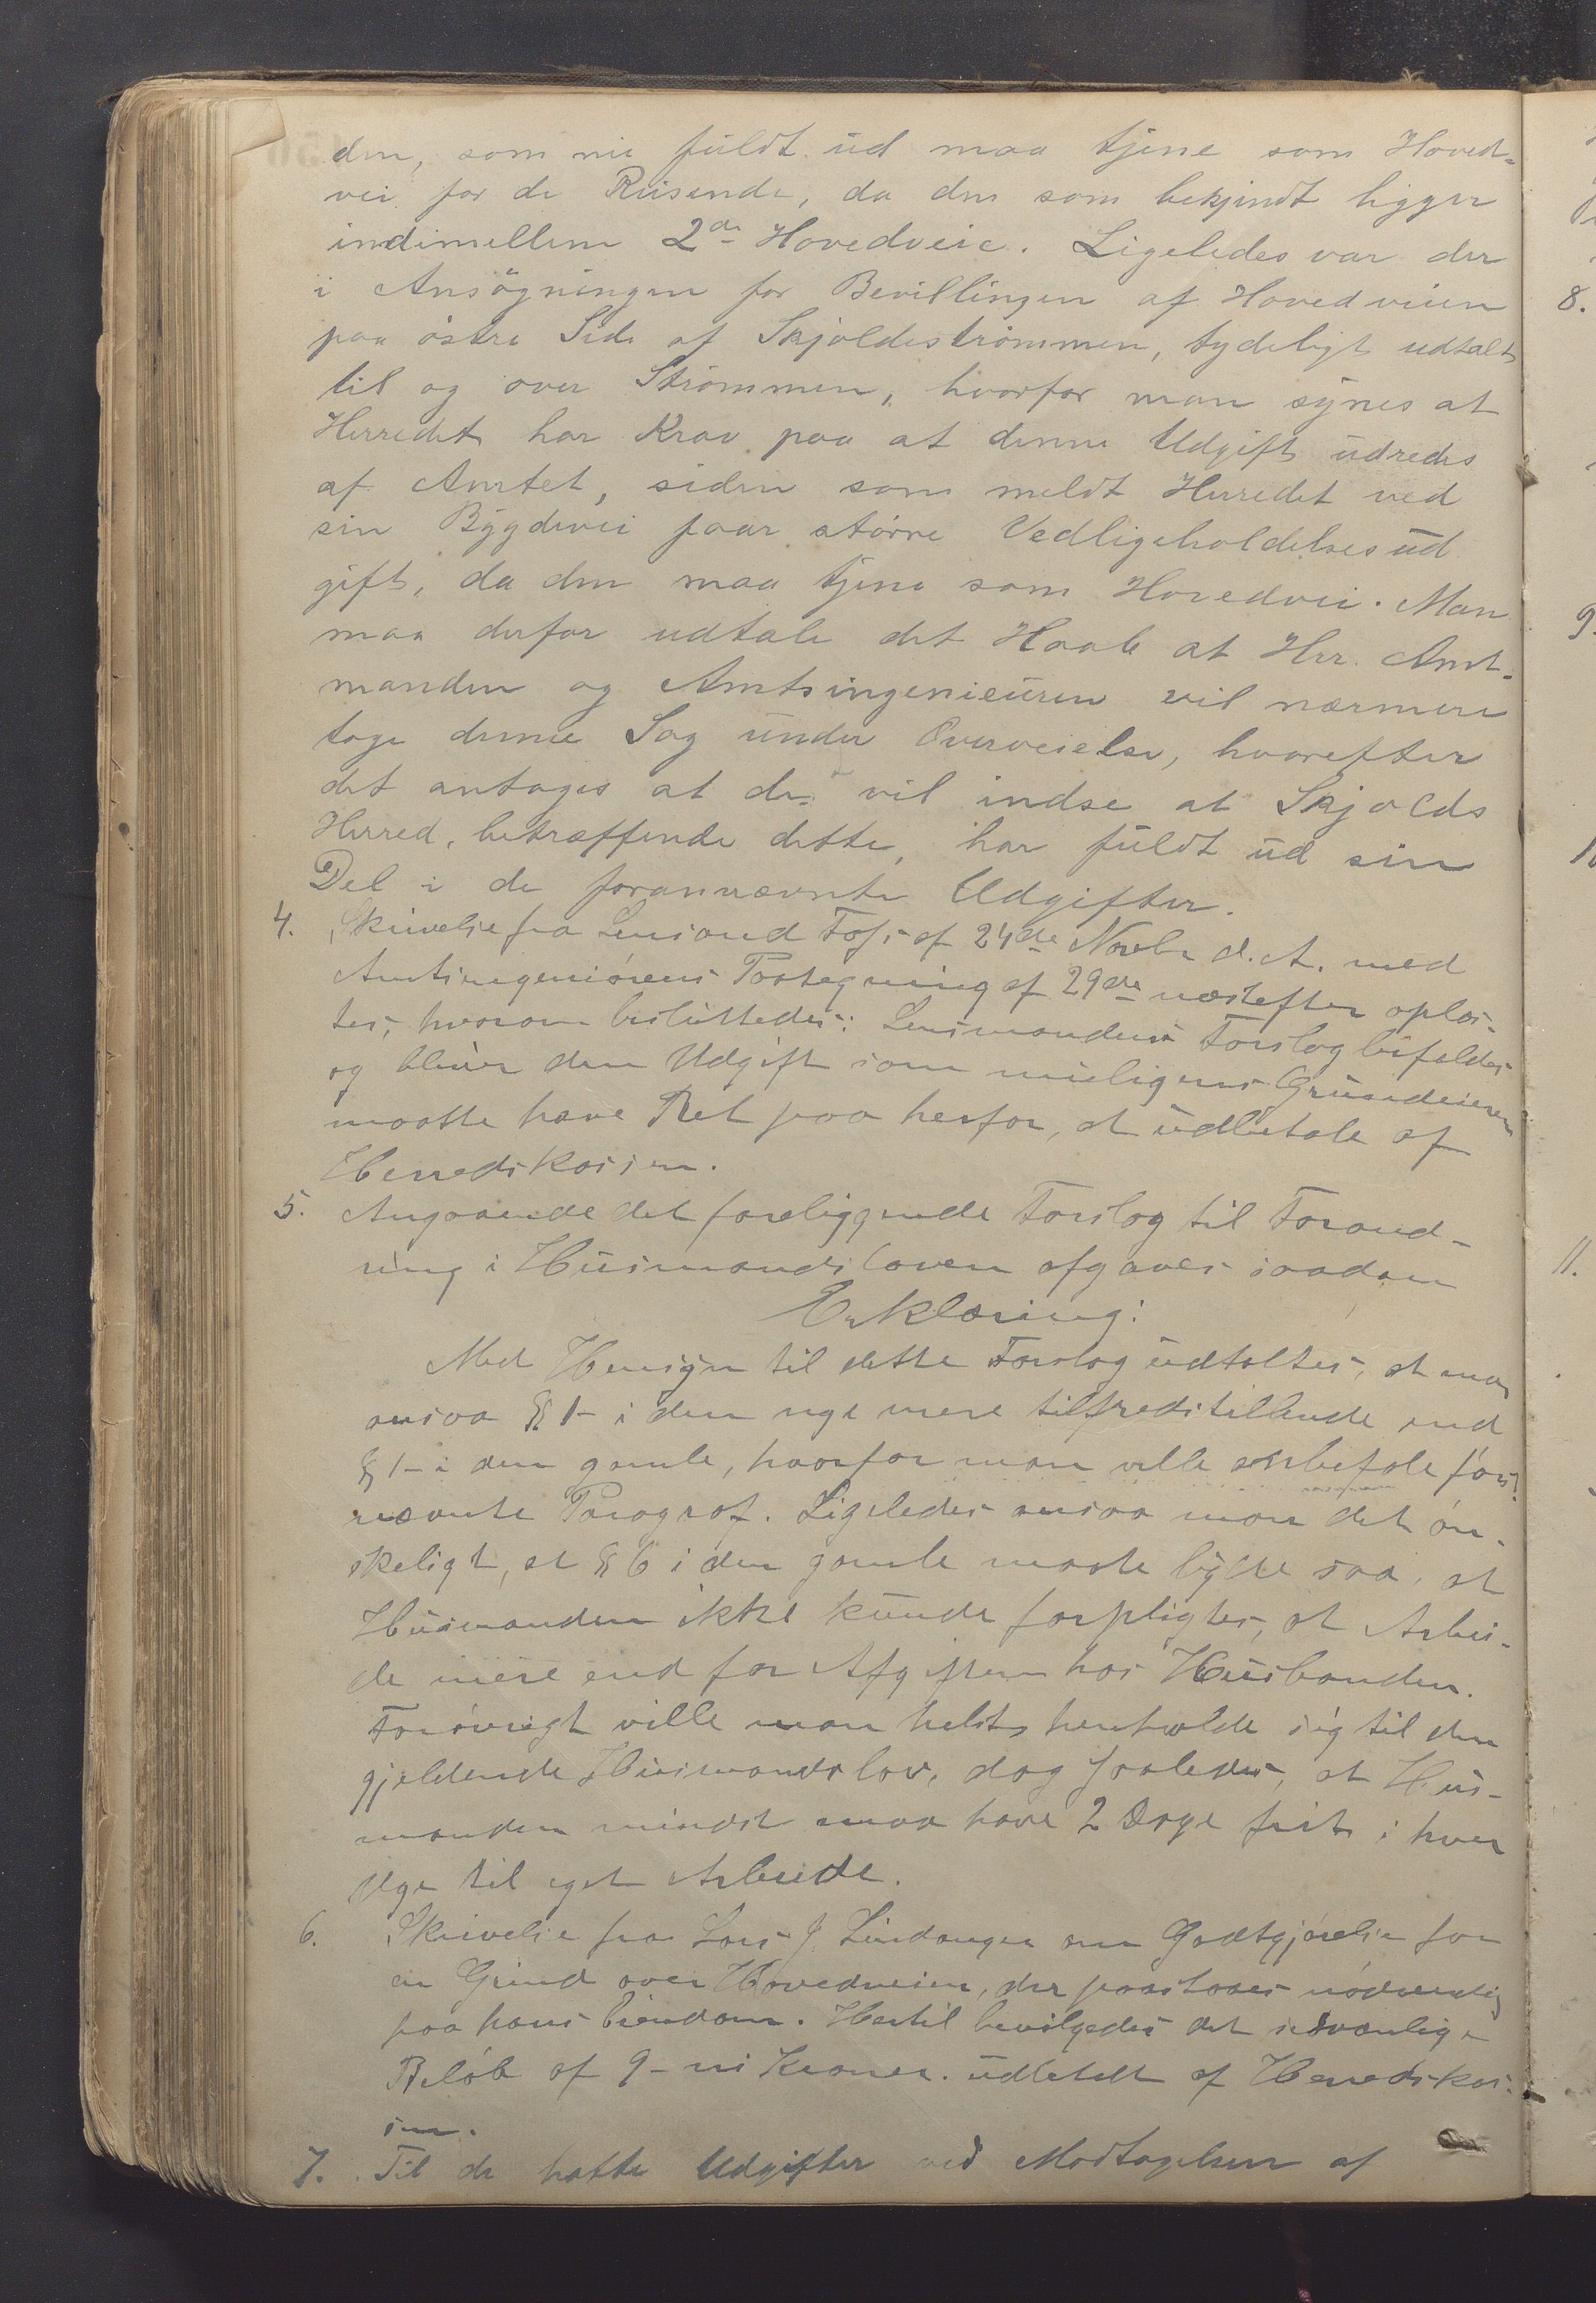 den, som nu fuldt ud maa tjene som Hoved-
vei for de Reisende, da den som bekjendt ligger
indimellem 2de Hovedveie. Ligeledes var der
i Ansøgningen for Bevillingen af Hovedveien
paa østre Side af Skjoldestrømmen, tydeligt udtalt
til og over Strømmen, hvorfor man synes at
Herredet har Krav paa at denne Udgift udredes
af Amtet, siden som meldt Herredet ved
sin Bygdevei faar større Vedligeholdelsesud
gift, da den maa tjene som Hovedvei. Man
maa derfor udtale det Haab at Hr. Amt-
manden og Amtsingenieuren vil nærmere
tage denne Sag under Overveielse, hvorefter
det antages at de vil indse at Skjolds
Herred, betræffende dette, har fuldt ud sin
Del i de forannævnte Udgifter.
4. Skrivelse fra Lensmand Foss af 24de Novbr d.A. med
Amtsingeniørens Paategning af 29de næstefter oplæs-
tes, hvorom besluttedes: Lensmandens Forslag bifaldes
og bliver den Udgift som muligens Grundeieren
maatte have Ret paa herfor, at udbetale af
Herredskassen.
5. Angaaende det foreliggende Forslag til Forand-
ring i Husmandsloven afgaves saadan
Erklæring:
Med Hensyn til dette Forslag udtaltes, at man
ansaa § 1 i den nye mere tilfredstillende end
§ 1 i den gamle, hvorfor man ville anbefale først-
nævnte Paragraf. Ligeledes ansaa man det øn-
skeligt, at § 6 i den gamle maatte lyde saa, at
Husmanden ikke kunde forpligtes, at Arbei-
de mere end for Afgiften hos Husbonden.
Forøvrigt ville man helst henholde sig til den
gjeldende Husmandslov, dog saaledes, at Hus-
manden mindst maa have 2 Dage frit i hver
Uge til eget Arbeide.
6. Skrivelse fra Lars J. Lindanger om Godtgjørelse for
en Grind over Hovedveien, der paastaaes nødvendig
paa hans Eiendom. Hertil bevilgedes det sedvanlige
Beløb af 9 - ni Kroner. udbetalt af Herredskas-
sen.
7. Til de hatte Udgifter ved Modtagelsen af
8.
9.
11.